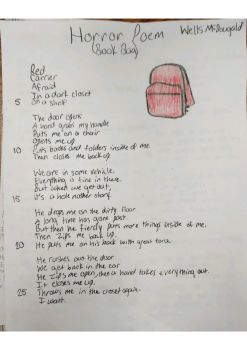 Horror Poem
Wells McDougald
(Book Bag)
Red
Carrier
Afraid
In a dark closet
5 On a shelf
The door opens
A hand grabs my handle
Puts me on a chair
Opens me up
10 Puts books and folders inside of me.
Then closes me back up.
We are in some vehicle.
Everything is fine in there.
But when we get out,
15 It's a hole nother story.
He drops me on the dirty floor
A long time has gone past
But then he fircely puts more things inside of me.
Then zips me back up.
20 He puts me on his back with great force.
He rushes out the door
We get back in the car
He zips me open, then a hand takes everything out.
It closes me up.
25 Throws me in the closet again.
I wait.